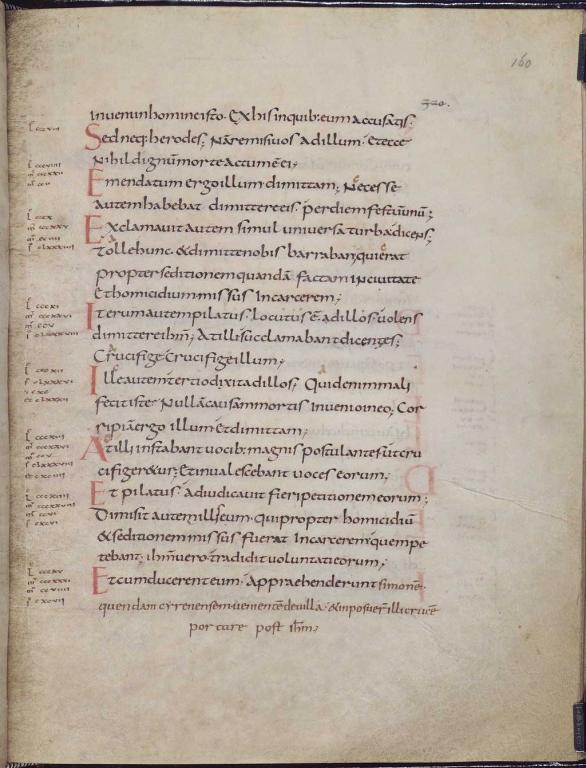 160
320.
inueni inhomineisto. Exhis inquib:eum accusatis.
Sed neq; herodes; Nā remisi uos ad illum. Et ecce
Nihil dignū morte actumē ei;
Emendatum ergo illum dimittam; Necesse
autem habebat dimittere eis. per diem festū unū;
Exclamauit autem simul uniuersa turba dicens;
Tolle hunc. & dimitte nobis barraban, qui erat
propter seditionem quandā factam in ciuitate
Et homicidium missus In carcerem;
Iterum autem pilatus. locutus ē. ad illos. uolens
dimittere ihm̄; At illi succlamabant dicentes;
Crucifige. Crucifige illum;
Ille autem tertio dixit ad illos; Quid enim mali
fecit iste? Nullā causam mortis Inuenio in eo; Cor
ripiā ergo illum Et dimittam;
At illi Instabant uocib; magnis postulantes ut cru
cifigeretur; Et inualescebant uoces eorum;
Et pilatus. adiudicauit fieri petitionem eorum;
Dimisit autem illis eum. qui propter homicidiū
& seditionem missus fuerat In carcerem quem pe
tebant; ihm̄ uero tradidit uoluntati eorum;
Et cum ducerent eum. Appraehenderunt simone
quendam cyrenensem uenientē deuilla. & imposuer̄ illi crucē
portare post ihm̄;